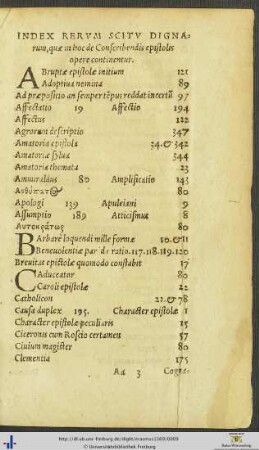 INDEX RERVM SCITV DIGNA-
rum, quæ in hoc de Conscribendis epistolis
opere continentur.
ABruptæ epistolæ initium 121
Adoptiua nomina 89
Ad præpositio an semper tēpus reddat incertū 97
Affectatio 19 Affectio 194
Affectus 122
Agrorum descriptio 347
Amatoria epistola 34. & 342
Amatoriæ sylua 344
Amatoria themata 23
Ammiraldus 80 Amplificatio 143
80
Apologi 139 Apuleiani 9
Assumptio 189 Atticismus 8
80
BArbarè loquendi mille formæ 10. & 11
Beneuolentiæ parādæ ratio. 117. 118. 119. 120
Breuitas epistolæ quomodo constabit 17
CAduceator 80
Caroli epistolæ 22
Catholicon 21. & 78
Causa duplex 195. Character epistolæ 1
Character epistolæ peculiaris 15
Ciceronis cum Roscio certamen 57
Ciuium magister 80
Clementia 175
Aa 3 Cogna-
Universitätsbibliothek Freiburg